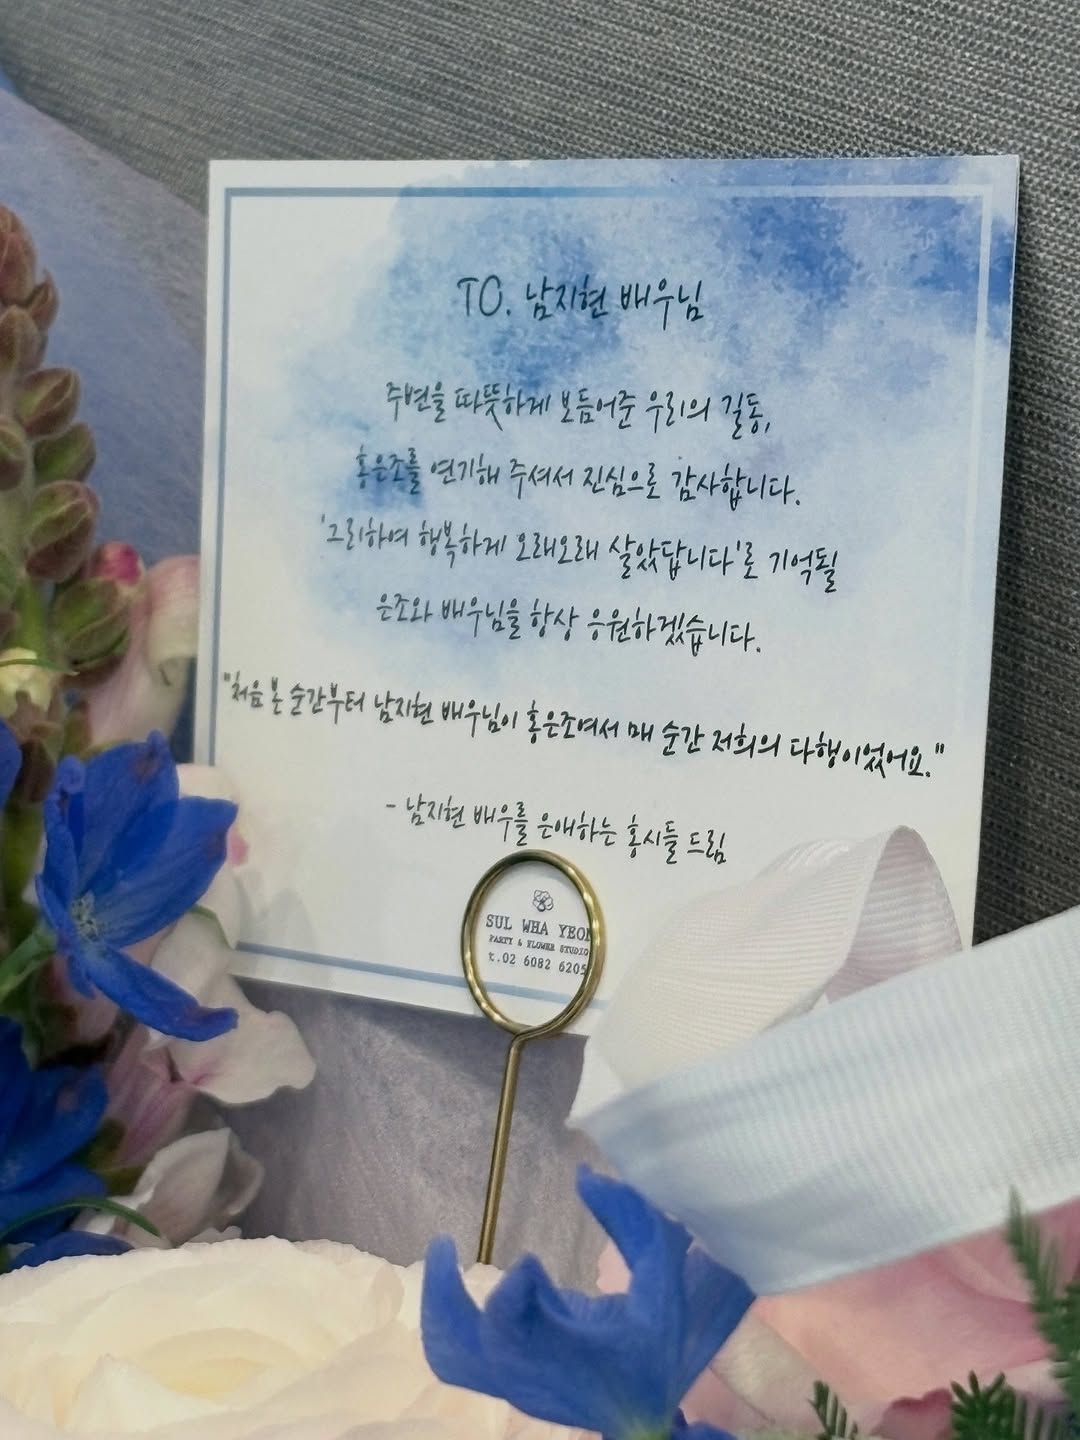 TO. 남지현 배우님
주변을 따뜻하게 보듬어준 우리의 길동,
홍은조를 연기해 주셔서 진심으로 감사합니다.
'그리하여 행복하게 오래오래 살았답니다'로 기억될
은조와 배우님을 항상 응원하겠습니다.
"처음 본 순간부터 남지현 배우님이 홍은조여서 매 순간 저희의 다행이었어요."
- 남지현 배우를 은애하는 홍시들 드림
SUL WHA YEON
PARTY & FLOWER STUDIO
t.02 6082 6205